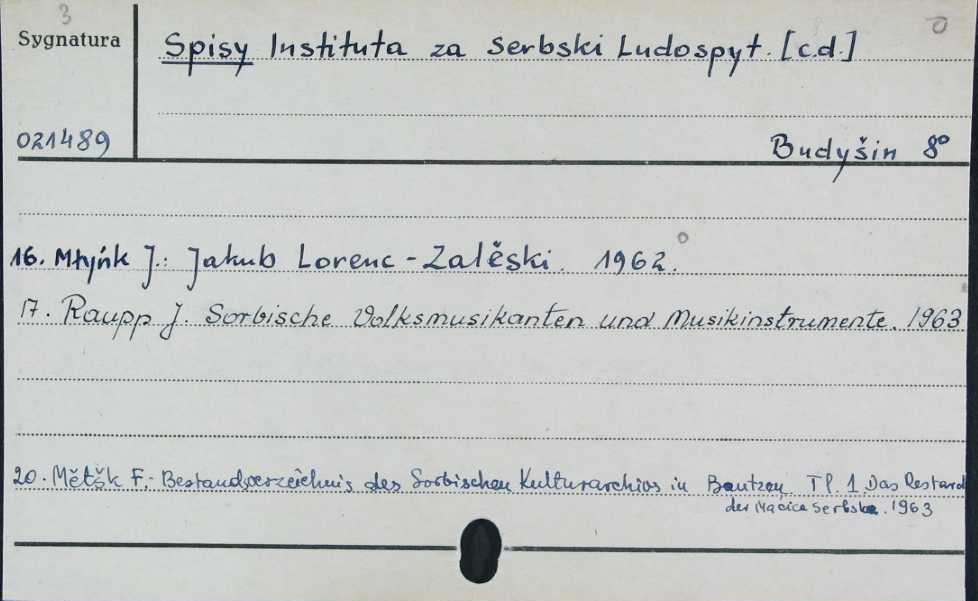 3
Sygnatura
Spisy Instituta za serbski Ludospyt. [c.d.]
021489
Budyšin 8°
16. Młyńk J.: Jakub Lorenc-Zalěski. 1962.
17. Raupp J. Sorbische Volksmusikanten und Musikinstrumente. 1963
20. Mětšk F.- Bestandsverzeichnis des Sorbischen Kulturarchivs in Bautzen Tl. 1. Das Bestand
der Maćica Serbska. 1963